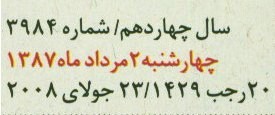 سال چهاردهم/ شماره ۳۹۸۴
چهارشنبه ۲ مرداد ماه ۱۳۸۷
۲۰ رجب ۲۳/۱۴۲۹ جولای ۲۰۰۸